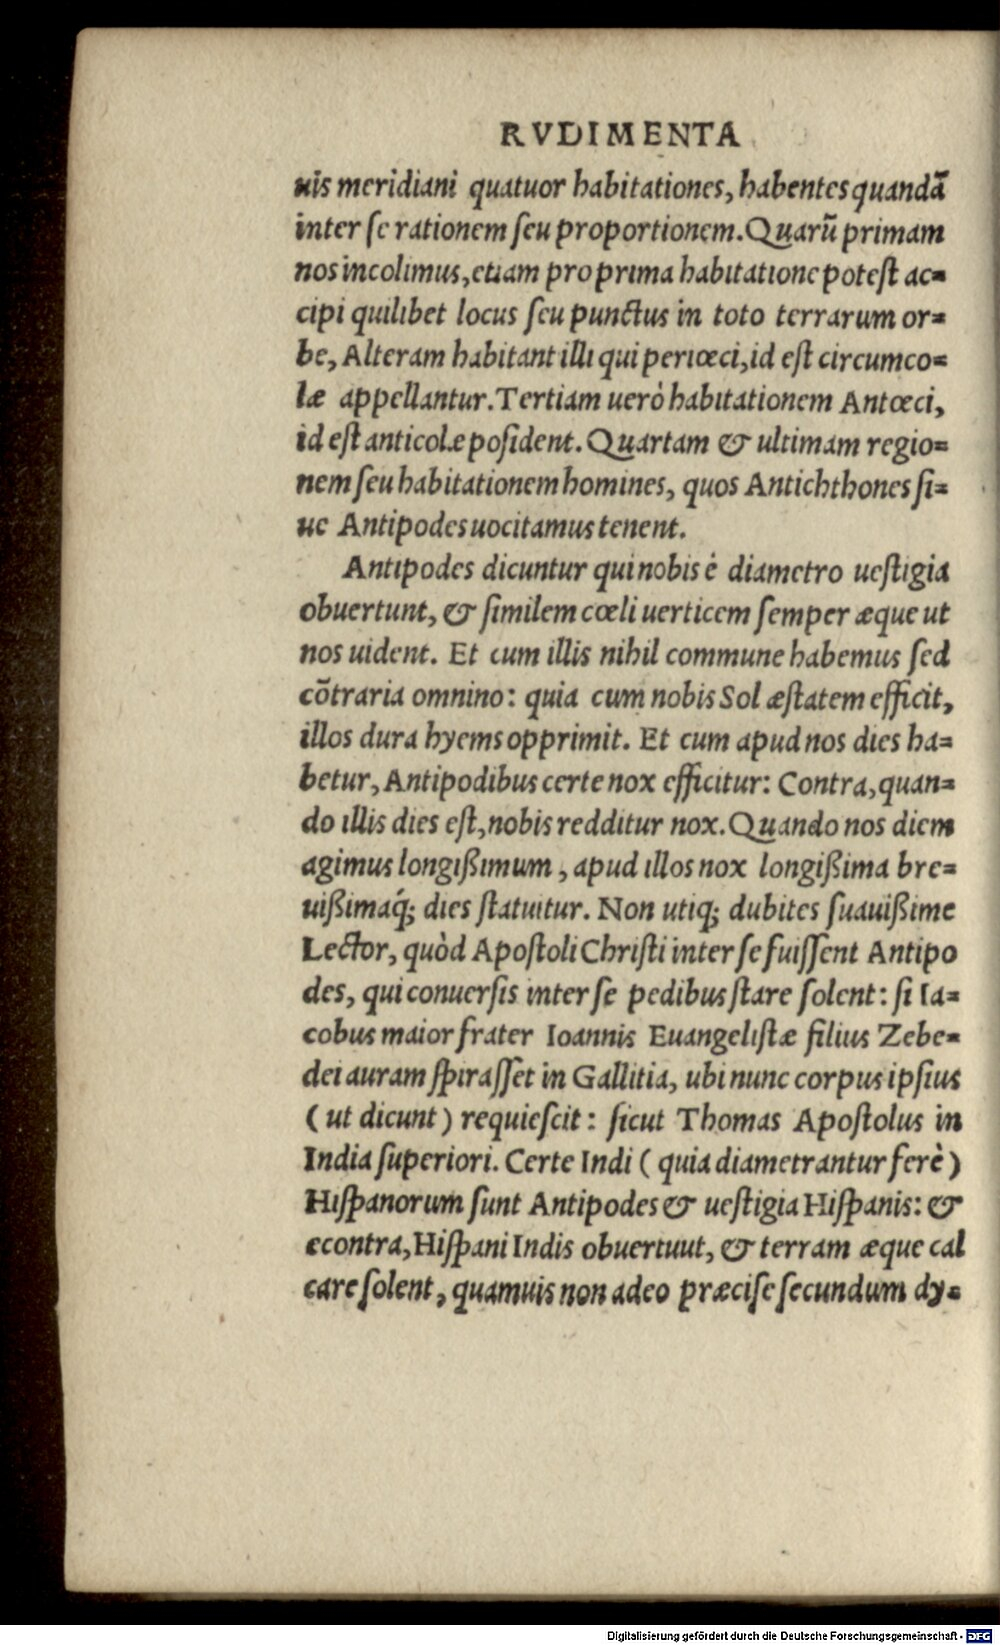 RVDIMENTA
uis meridiani quatuor habitationes, habentes quandā
inter ſe rationem ſeu proportionem. Quarū primam
nos incolimus, etiam pro prima habitatione poteſt ac=
cipi quilibet locus ſeu punctus in toto terrarum or=
be, Alteram habitant illi qui periœci, id eſt circumco=
læ appellantur. Tertiam uerò habitationem Antœci,
id eſt anticolæ poſident. Quartam & ultimam regio=
nem ſeu habitationem homines, quos Antichthones ſi=
ue Antipodes uocitamus tenent.
Antipodes dicuntur qui nobis è diametro ueſtigia
obuertunt, & ſimilem cœli uerticem ſemper æque ut
nos uident. Et cum illis nihil commune habemus ſed
cōtraria omnino: quia cum nobis Sol æſtatem efficit,
illos dura hyems opprimit. Et cum apud nos dies ha=
betur, Antipodibus certe nox efficitur: Contra, quan=
do illis dies eſt, nobis redditur nox. Quando nos diem
agimus longißimum, apud illos nox longißima bre=
uißimaq́; dies ſtatuitur. Non utiq; dubites ſuauißime
Lector, quòd Apoſtoli Chriſti inter ſe fuiſſent Antipo
des, qui conuerſis inter ſe pedibus ſtare ſolent: ſi Ia=
cobus maior frater Ioannis Euangeliſtæ filius Zebe=
dei auram ſpiraſſet in Gallitia, ubi nunc corpus ipſius
(ut dicunt) requieſcit: ſicut Thomas Apoſtolus in
India ſuperiori. Certe Indi (quia diametrantur ferè)
Hiſpanorum ſunt Antipodes & ueſtigia Hiſpanis: &
econtra, Hiſpani Indis obuertuut, & terram æque cal
care ſolent, quamuis non adeo præciſe ſecundum dy=
Digitalisierung gefördert durch die Deutsche Forschungsgemeinschaft - DFG